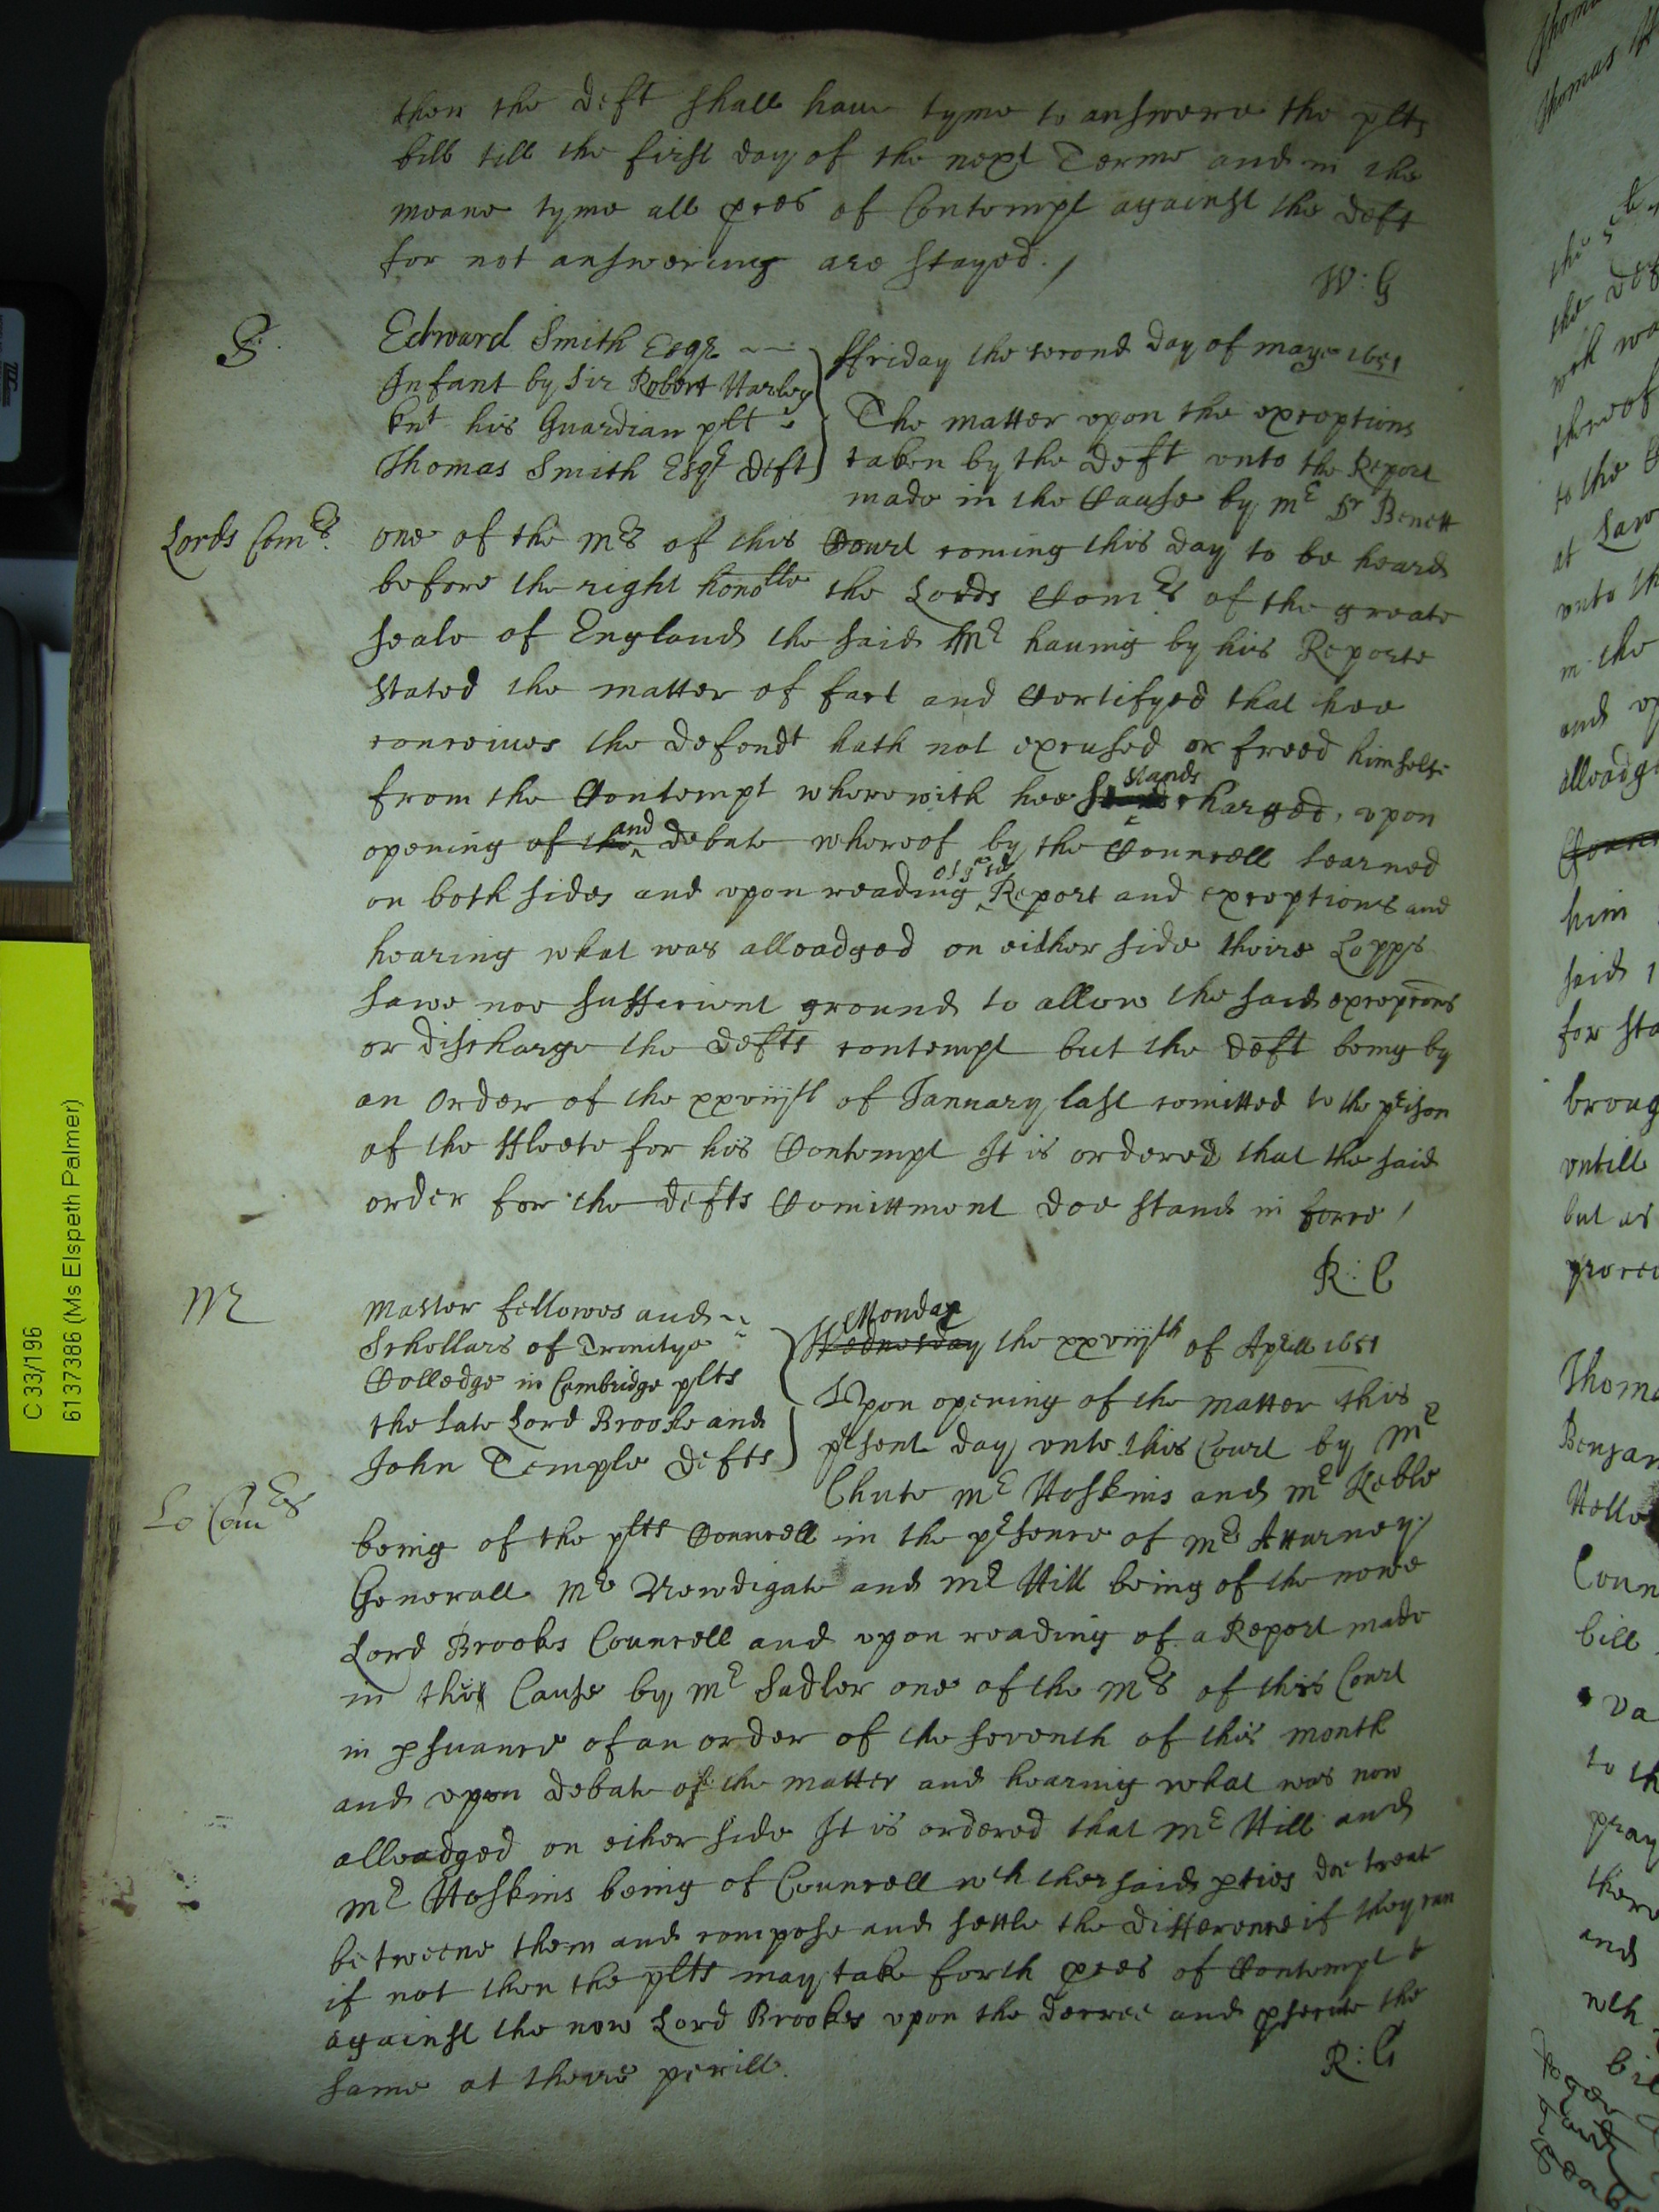 then the deft shall haue tyme to answere the plts
bill till the first day of the next Terme and in the
meane tyme all pces of Contempt against the deft
for not answering are stayed. /
W: G
S.
Edward Smith Esqr
Infant by Sir Robert Harley
knt his Guardian plt
Thomas Smith Esqr deft
ffriday the second day of maye 1651
The matter vpon the exceptions
taken by the deft vnto the Report
made in the Cause by mr Dr Benett
Lords Comrs.
one of the mrs of this Court coming this day to be heard
before the right honoble the Lords Comrs of the greate
seale of England the said Mr hauing by his Reporte
stated the matter of fact and Certifyed that hee
conceiues the defendt hath not excused or freed himselfe
from the Contempt wherewith hee stands charged, vpon
opening of the and debate whereof by the Councell learned
on both sides and vpon reading of ye sd Report and exceptions and
hearing what was alleadged on either side theire Lopps
sawe noe sufficient ground to allow the said excepcons
or discharge the defts contempt but the deft being by
an Order of the xxviijst of January last comitted to the prison
of the ffleete for his Contempt It is ordered that the said
order for the defts Comittment doe stand in force /
R: C
Mr
Master fellowes and
Schollars of Trinitye
Colledge in Cambridge plts
the late Lord Brooke and
John Temple defts
Monday
Wednesday the xxviijth of Aprill 1651
Vpon opening of the matter this
prsent day vnto this Court by Mr
Chute mr Hoskins and mr Keble
Lo Comrs
being of the plts Councell in the prsence of mr Atturney
Generall mr Newdigate and mr Hill being of the nowe
Lord Brooks Councell and vpon reading of a Report made
in this Cause by mr Sadler one of the mrs of this Court
in psuance of an order of the seventh of this month
and vpon debate of the matter and hearing what was now
alleadged on either side It is ordered that mr Hill and
mr Hoskins being of Councell wth the said pties doe treat
betweene them and compose and settle the difference if they can
if not then the plts may take forth pces of Contempt
against the now Lord Brookes vpon the decree and psecute the
same at theire perill.
R: G
C 33/196
6137386 (Ms Elspeth Palmer)